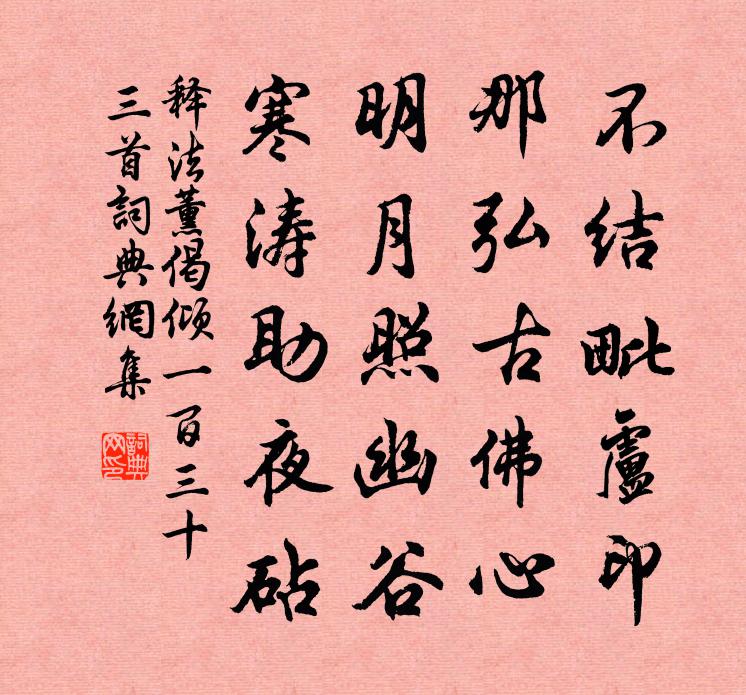 不结毗卢印
那弘古佛心
明月照幽谷
寒涛助夜砧
释法薰偈倾一百三十
三首詞典網集
詞典网印